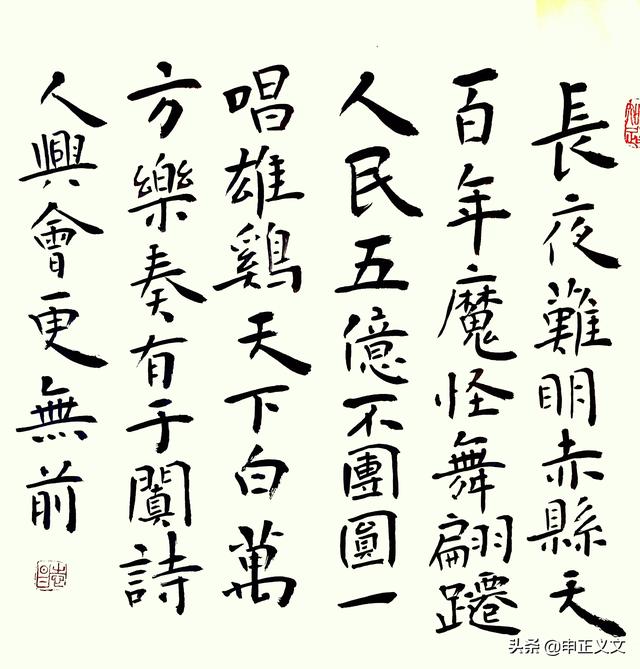 長夜難明赤縣天
百年魔怪舞翩躚
人民五億不團圓一
唱雄鷄天下白萬
方樂奏有于闐詩
人興會更無前
头条 @申正义文